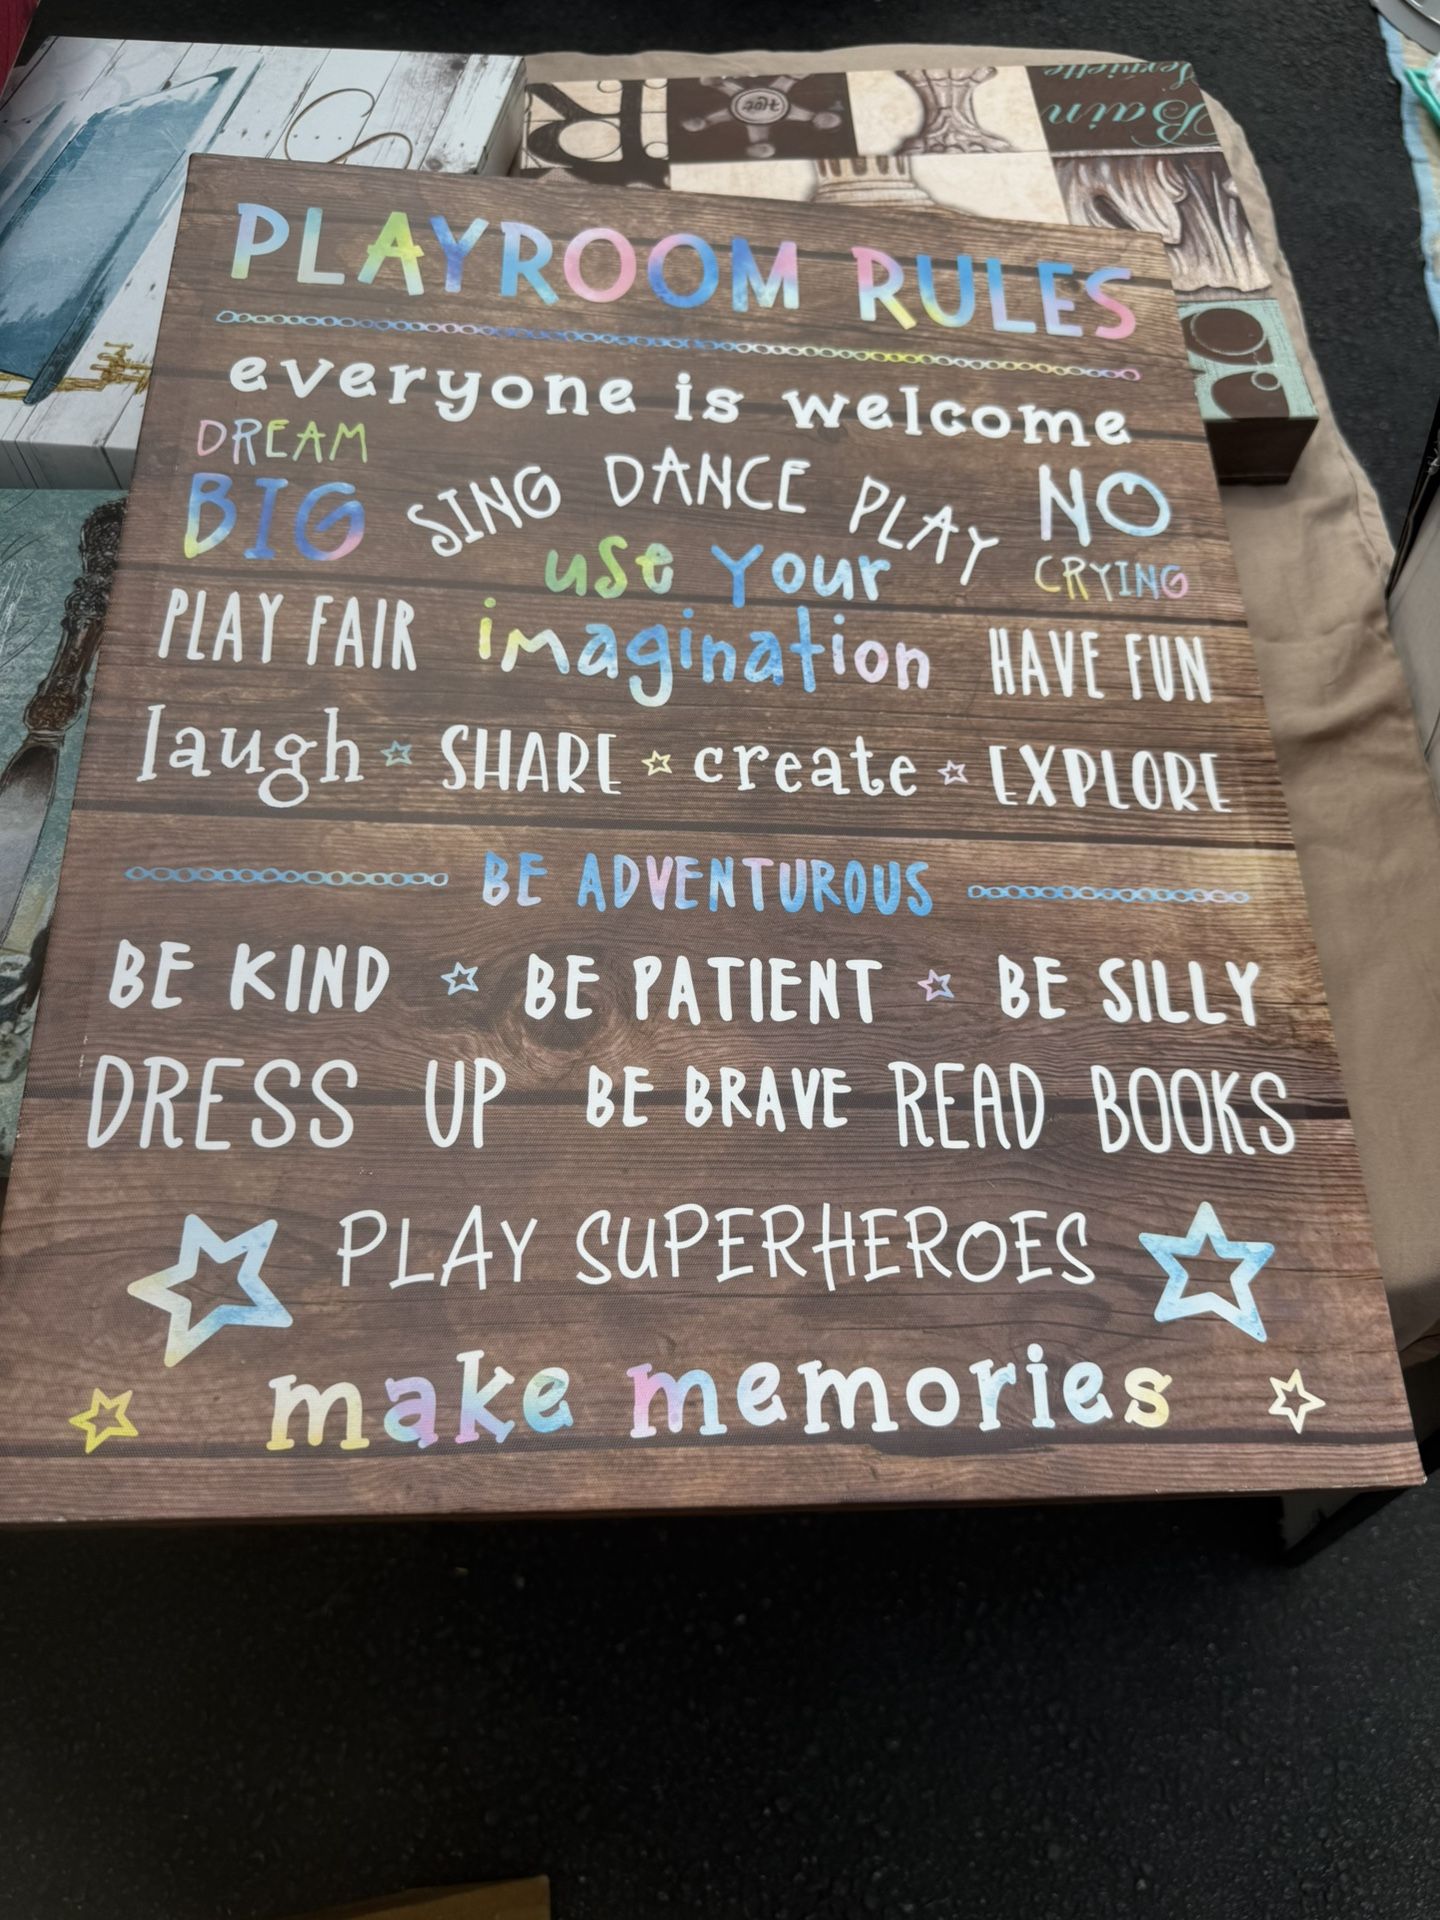 Serviette
Bain
R
Hot
PLAYROOM RULES
everyone is welcome
DREAM
BIG
SING DANCE PLAY
NO
CRYING
use your
imagination
PLAY FAIR
HAVE FUN
laugh SHARE create EXPLORE
BE ADVENTUROUS
BE KIND BE PATIENT BE SILLY
DRESS UP BE BRAVE READ BOOKS
PLAY SUPERHEROES
make memories